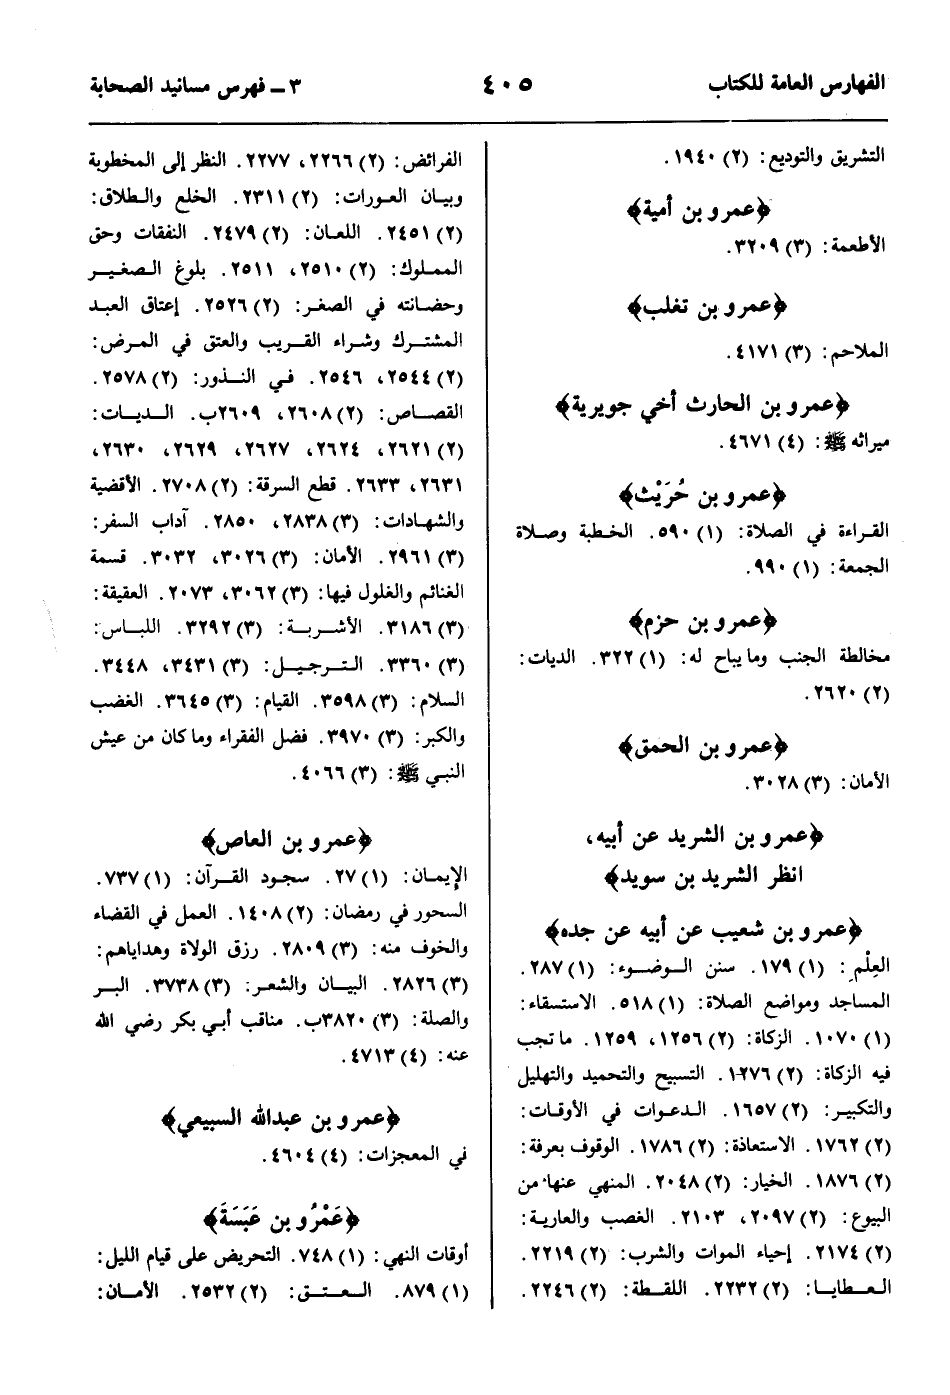 الفهارس العامة للكتاب ٤٠٥ ٣ ـ فهرس مسانيد الصحابة
التشريق والتوديع: (٢) ١٩٤٠.
﴿عمرو بن أمية﴾
الأطعمة: (٣) ٣٢٠٩.
﴿عمرو بن تغلب﴾
الملاحم: (٣) ٤١٧١.
﴿عمرو بن الحارث أخي جويرية﴾
ميراثه ﷺ: (٤) ٤٦٧١.
﴿عمرو بن حُرَيْث﴾
القراءة في الصلاة: (١) ٥٩٠. الخطبة وصلاة
الجمعة: (١) ٩٩٠.
﴿عمرو بن حزم﴾
مخالطة الجنب وما يباح له: (١) ٣٢٢. الديات:
(٢) ٢٦٢٠.
﴿عمرو بن الحمق﴾
الأمان: (٣) ٣٠٢٨.
﴿عمرو بن الشريد عن أبيه،
انظر الشريد بن سويد﴾
﴿عمرو بن شعيب عن أبيه عن جده﴾
العِلْمِ: (١) ١٧٩. سنن الوضوء: (١) ٢٨٧.
المساجد ومواضع الصلاة: (١) ٥١٨. الاستسقاء:
(١) ١٠٧٠. الزكاة: (٢) ١٢٥٦، ١٢٥٩. ما تجب
فيه الزكاة: (٢) ١٢٧٦. التسبيح والتحميد والتهليل
والتكبير: (٢) ١٦٥٧. الدعوات في الأوقات:
(٢) ١٧٦٢. الاستعاذة: (٢) ١٧٨٦. الوقوف بعرفة:
(٢) ١٨٧٦. الخيار: (٢) ٢٠٤٨. المنهي عنها من
البيوع: (٢) ٢٠٩٧، ٢١٠٣. الغصب والعارية:
(٢) ٢١٧٤. إحياء الموات والشرب: (٢) ٢٢١٩.
العطايا: (٢) ٢٢٣٢. اللقطة: (٢) ٢٢٤٦.
الفرائض: (٢) ٢٢٦٦، ٢٢٧٧. النظر إلى المخطوبة
وبيان العورات: (٢) ٢٣١١. الخلع والطلاق:
(٢) ٢٤٥١. اللعان: (٢) ٢٤٧٩. النفقات وحق
المملوك: (٢) ٢٥١٠، ٢٥١١. بلوغ الصغير
وحضانته في الصغر: (٢) ٢٥٢٦. إعتاق العبد
المشترك وشراء القريب والعتق في المرض:
(٢) ٢٥٤٤، ٢٥٤٦. في النذور: (٢) ٢٥٧٨.
القصاص: (٢) ٢٦٠٨، ٢٦٠٩ب. الديات:
(٢) ٢٦٢١، ٢٦٢٤، ٢٦٢٧، ٢٦٢٩، ٢٦٣٠،
٢٦٣١، ٢٦٣٣. قطع السرقة: (٢) ٢٧٠٨. الأقضية
والشهادات: (٣) ٢٨٣٨، ٢٨٥٠. آداب السفر:
(٣) ٢٩٦١. الأمان: (٣) ٣٠٢٦، ٣٠٣٢. قسمة
الغنائم والغلول فيها: (٣) ٣٠٦٢، ٢٠٧٣. العقيقة:
(٣) ٣١٨٦. الأشربة: (٣) ٣٢٩٢. اللباس:
(٣) ٣٣٦٠. الترجيل: (٣) ٣٤٣١، ٣٤٤٨.
السلام: (٣) ٣٥٩٨. القيام: (٣) ٣٦٤٥. الغضب
والكبر: (٣) ٣٩٧٠. فضل الفقراء وما كان من عيش
النبي ﷺ: (٣) ٤٠٦٦.
﴿عمرو بن العاص﴾
الإيمان: (١) ٢٧. سجود القرآن: (١) ٧٣٧.
السحور في رمضان: (٢) ١٤٠٨. العمل في القضاء
والخوف منه: (٣) ٢٨٠٩. رزق الولاة وهداياهم:
(٣) ٢٨٢٦. البيان والشعر: (٣) ٣٧٣٨. البر
والصلة: (٣) ٣٨٢٠ب. مناقب أبي بكر رضي الله
عنه: (٤) ٤٧١٣.
﴿عمرو بن عبدالله السبيعي﴾
في المعجزات: (٤) ٤٦٠٤.
﴿عَمْرُو بن عَبَسَةَ﴾
أوقات النهي: (١) ٧٤٨. التحريض على قيام الليل:
(١) ٨٧٩. العتق: (٢) ٢٥٣٢. الأمان: